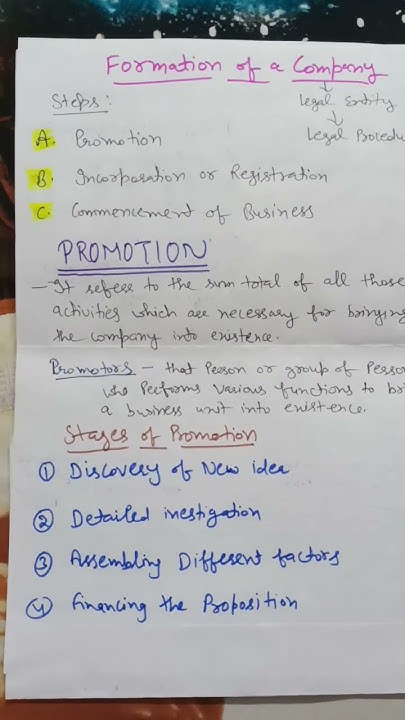 Formation of a Company
Steps:
Legal Entity
A. Promotion
Legal Procedu
B. Incorporation or Registration
C. Commencement of Business
PROMOTION
— It refers to the sum total of all those
activities which are necessary for bringing
the company into existence.
Promotors — that Person or group of Person
who Performs various functions to bri
a business unit into existence.
Stages of Promotion
① Discovery of New idea
② Detailed inestigation
③ Assembling Different factors
④ financing the Proposition